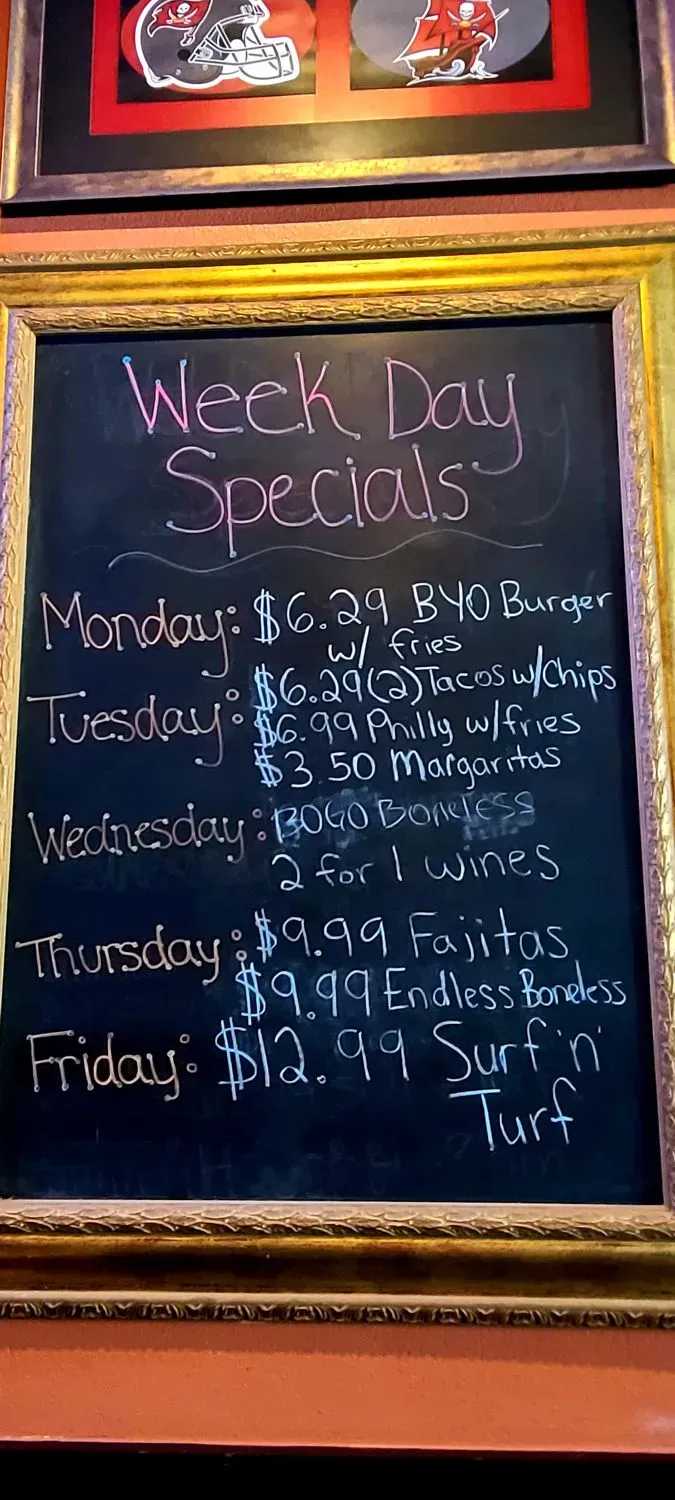 Week Day
Specials
Monday: $6.29 BYO Burger
w/ fries
Tuesday: $6.29 (2) Tacos w/Chips
$6.99 Philly w/fries
$3.50 Margaritas
Wednesday: BOGO Boneless
2 for 1 wines
Thursday: $9.99 Fajitas
$9.99 Endless Boneless
Friday: $12.99 Surf 'n'
Turf